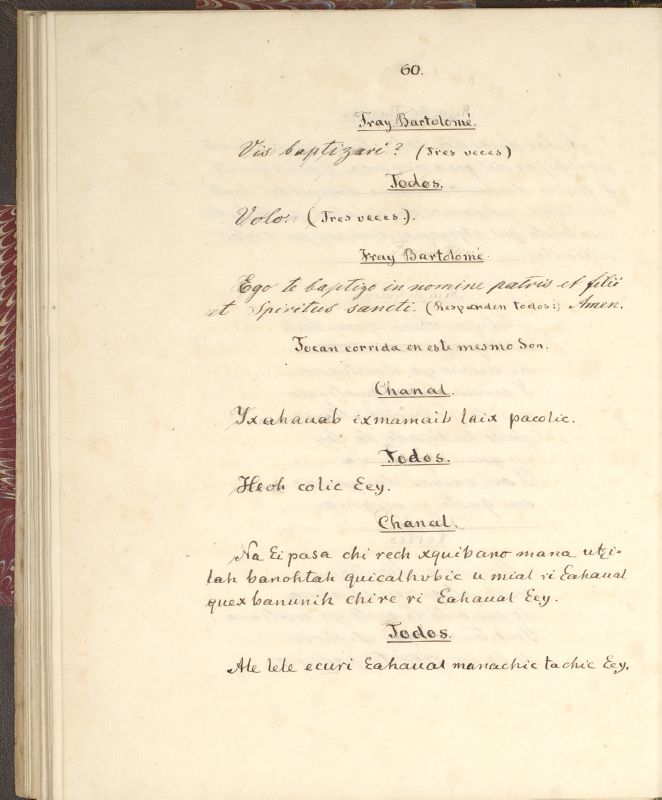 60.
Fray Bartolomé.
Vis baptizari? (Tres veces)
Todos.
Volo: (Tres veces.).
Fray Bartolomé.
Ego te baptizo in nomine patris et filii
et Spiritus sancti. (Responden todos:) Amen.
Tocan corrida en este mesmo Son.
Chanal.
Yxahauab ixmamaib laix pacolic.
Todos.
Heoh colic Eey.
Chanal.
Na Ei pasa chi rech xquibano mana utzi-
lah banohtah quicalhubic u mial ri Eahaual
quex banunih chire ri Eahaual Eey.
Todos.
Ale lele ecuri Eahaual manachic tachic Eey.